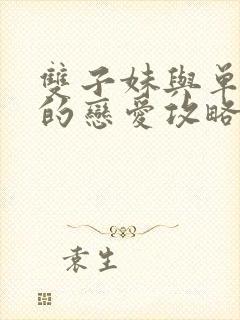 雙子妹與單
的戀愛攻略
袁生